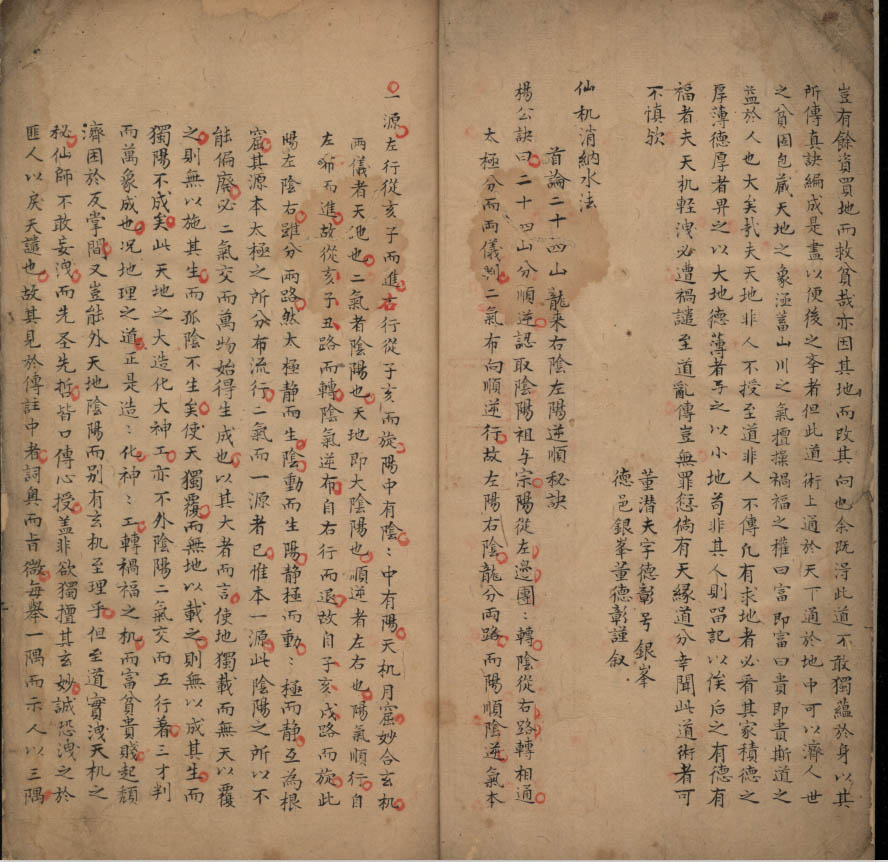 豈有餘資買地而救貧哉亦因其地而改其向也余既淂此道不敢獨蘊於身以其
所傳真訣編成是畫以便後之斈者但此道術上通於天下通於地中可以濟人世
之貧困包藏天地之象洆蓄山川之氣擅操禍福之權曰富即富曰貴即貴斯道之
益於人也大矣哉夫天地非人不授至道非人不傳凢有求地者必看其家積德之
厚薄德厚者畀之以大地德薄者予之以小地苟非其人則噐記以俟后之有德有
福者夫天机輕洩必遭禍譴至道亂傳豈無罪愆倘有天縁道分幸聞此道術者可
不慎欤
董潜夫字德彰号銀峯
德邑銀峯董德彰謹叙
仙机消納水法
首論二十四山龍来右陰左陽逆順秘訣
楊公訣曰二十四山分順逆認取陰陽祖与宗陽從左邊團〻轉陰從右路轉相通
太極分而兩儀判二氣布向順逆行故左陽右陰龍分兩路而陽順陰逆氣本
一源左行從亥子而進右行從子亥而旋陽中有陰〻中有陽天机月窟妙合玄机
兩儀者天地也二氣者陰陽也天地即大陰陽也順逆者左右也陽氣順行自
左布而進故從亥子丑路而轉陰氣逆布自右行而退故自子亥戍路而旋此
陽左陰右雖分兩路然太極静而生陰動而生陽静極而動〻極而静互為根
窟其源本太極之所分布流行二氣而一源者已惟本一源此陰陽之所以不
能偏廢必二氣交而萬物始得生成也以其大者而言使地獨載而無天以覆
之則無以施其生而孤陰不生矣使天獨覆而無地以載之則無以成其生而
獨陽不成矣此天地之大造化大神工亦不外陰陽二氣交而五行着三才判
而萬象成也况地理之道正是造〻化神〻工轉禍福之机而富貧貴賤起頹
濟困於反掌間又豈能外天地陰陽而别有玄机至理乎但至道實洩天机之
秘仙師不敢妄洩而先圣先哲皆口傳心授盖非欲獨擅其玄妙誠恐洩之於
匪人以戾天譴也故其見於傳註中者詞奥而旨微每舉一隅而示人以三隅